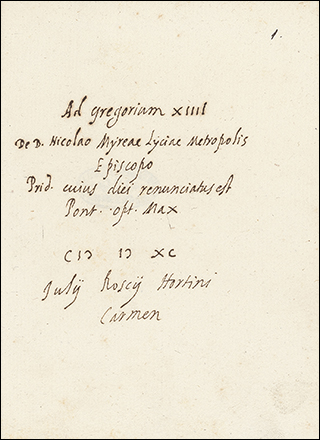 1.
Ad gregorium XIIII
De D. Nicolao Myreae Lyciae Metropolis
Episcopo
Prid. cuius diei renunciatus est
Pont. opt. Max
CIↃ IↃ XC
Julij Roscij Hortini
Carmen